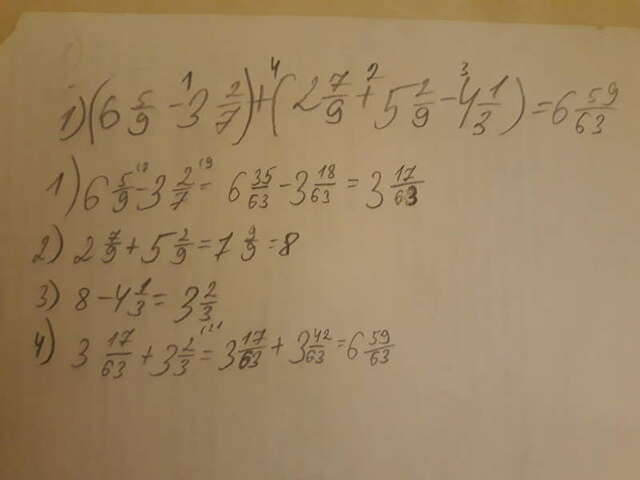 1) (6 5/9 - 3 2/7) + (2 7/9 + 5 2/9 - 4 1/3) = 6 59/63
1) 6 5/9 - 3 2/7 = 6 35/63 - 3 18/63 = 3 17/63
2) 2 7/9 + 5 2/9 = 7 9/9 = 8
3) 8 - 4 1/3 = 3 2/3
4) 3 17/63 + 3 2/3 = 3 17/63 + 3 42/63 = 6 59/63